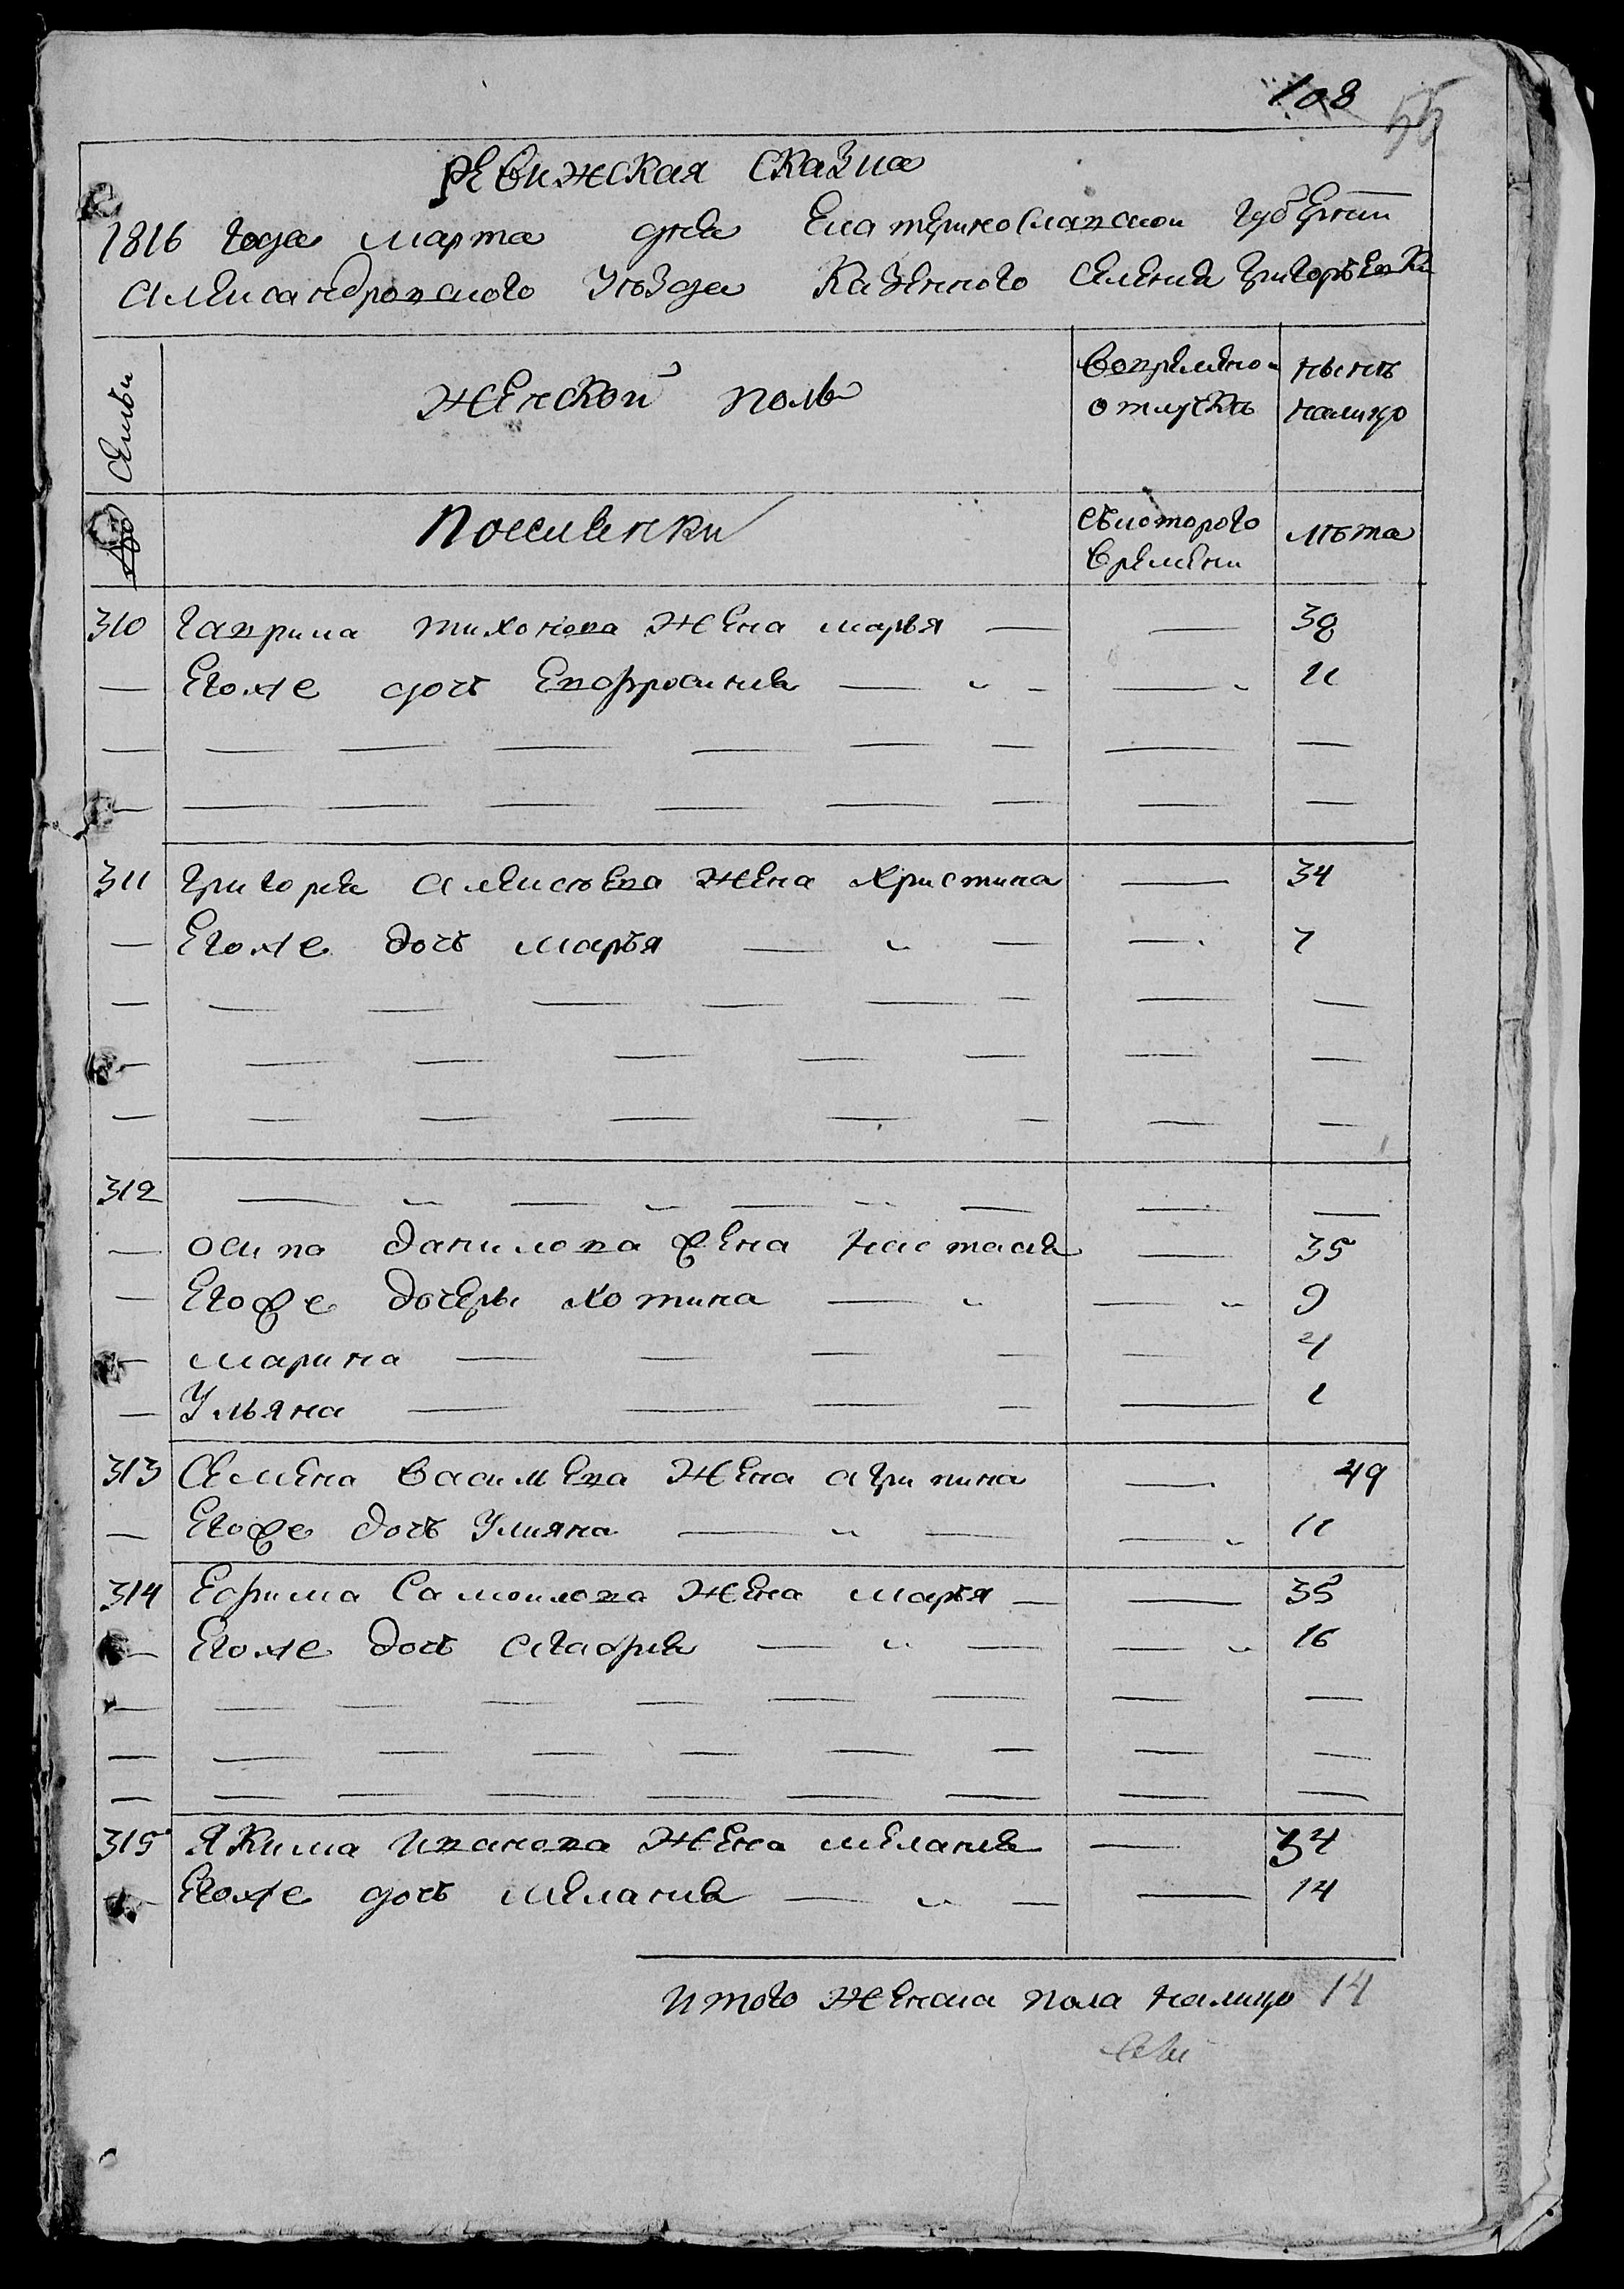 108 55
Ревижская сказка
1816 года марта дня Екатеринославской губернии
Александровского уезда казенного селения Григорьевки
Семьи
женской полъ
Вовременно отлучкѣ
нынѣ налицо
№
Поселенки
Съкоторого времени
лѣта
310 Гаврила тихонова жена марья — — 38
— Егоже дочь Евфросиния — — 11
311 Григория Алексѣева жена христина — 34
— Егоже дочь марья — — 7
312 — — — —
— осипа данилова жена настасия — 35
— Егоже дочери хотина — — 9
— марина — — 4
— Ульяна — — 1
313 Семена васильева жена агрипина — 49
— Егоже дочь Улияна — — 11
314 Ефима Самоилова жена марья — — 35
— Егоже дочь Агафия — — 16
315 Якима иванова жена мелания — 34
— Егоже дочь мелания — — 14
итого женска пола налицо 14